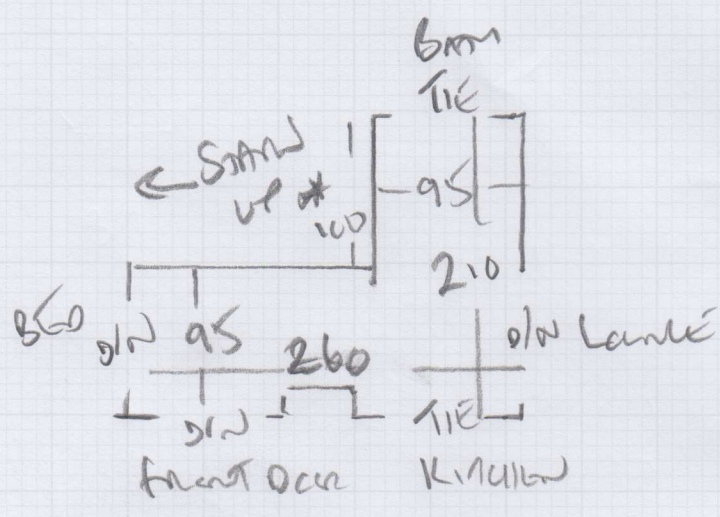 BATH
TIE
← STAIRS
UP *
100
95
210
BED
D/N
95
260
D/N LOUNGE
D/N
TIE
FRONT DOOR
KITCHEN